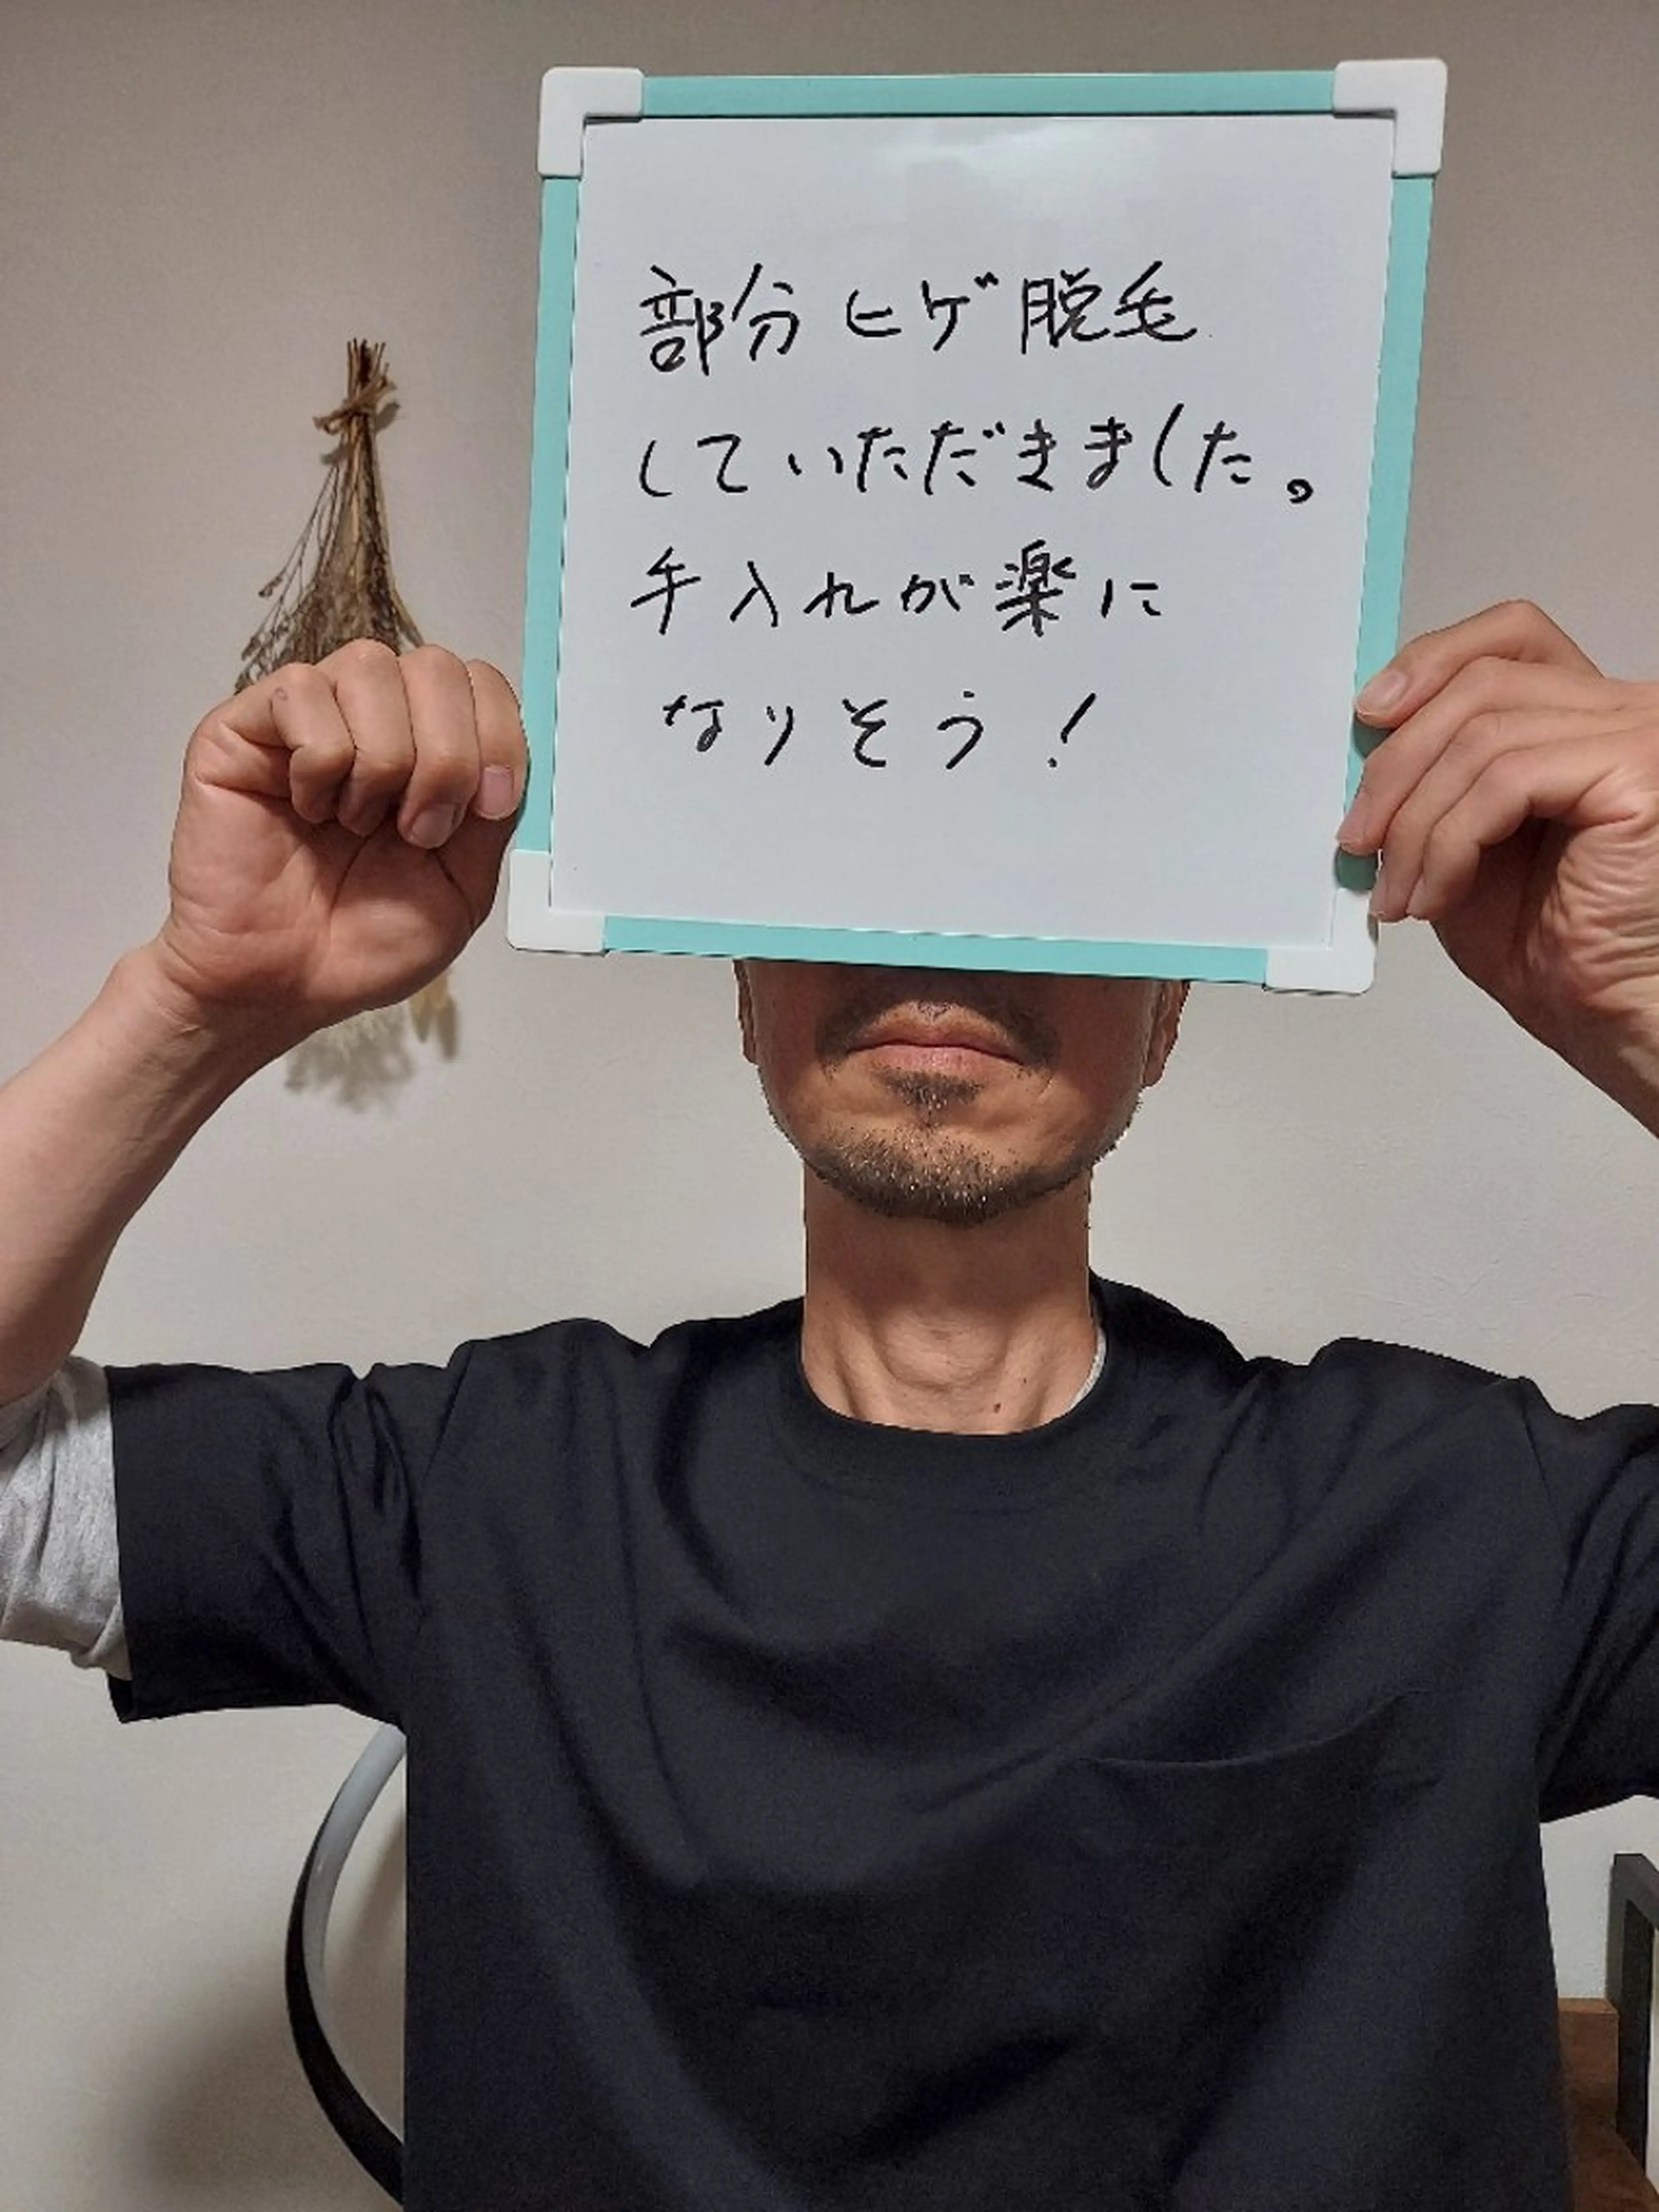 部分ヒゲ脱毛
していただきました。
手入れが楽に
なりそう!